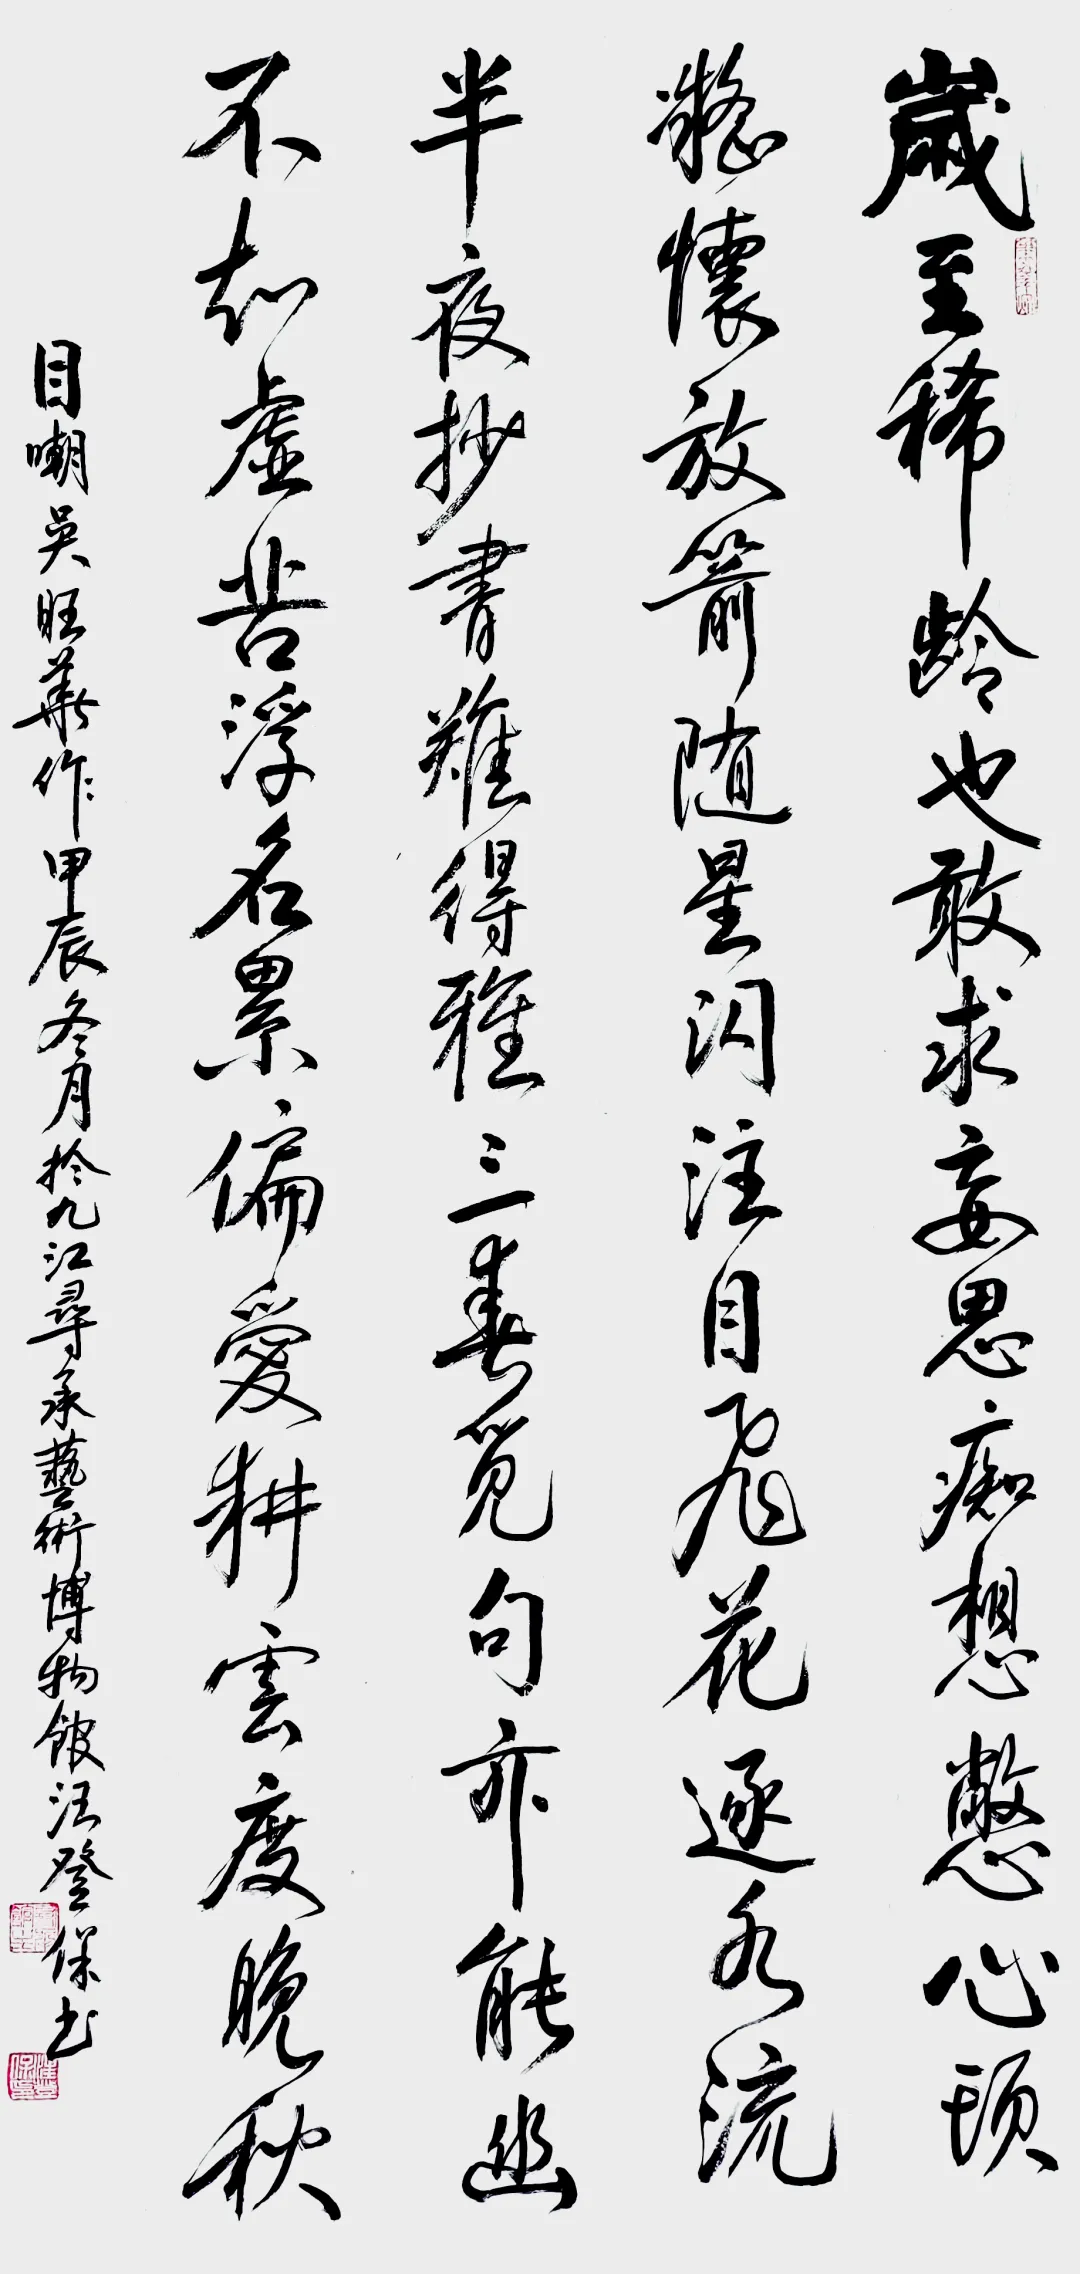 歲至稀齡也敢求妄思痴想憋心頭
凝懷放箭随星闪注目飛花逐水流
半夜抄書難得雅三春覓句亦能幽
不知虛苦浮名累偏愛耕雲度晚秋
自嘲吴旺華作甲辰冬月於九江尋承藝術博物館汪登保书